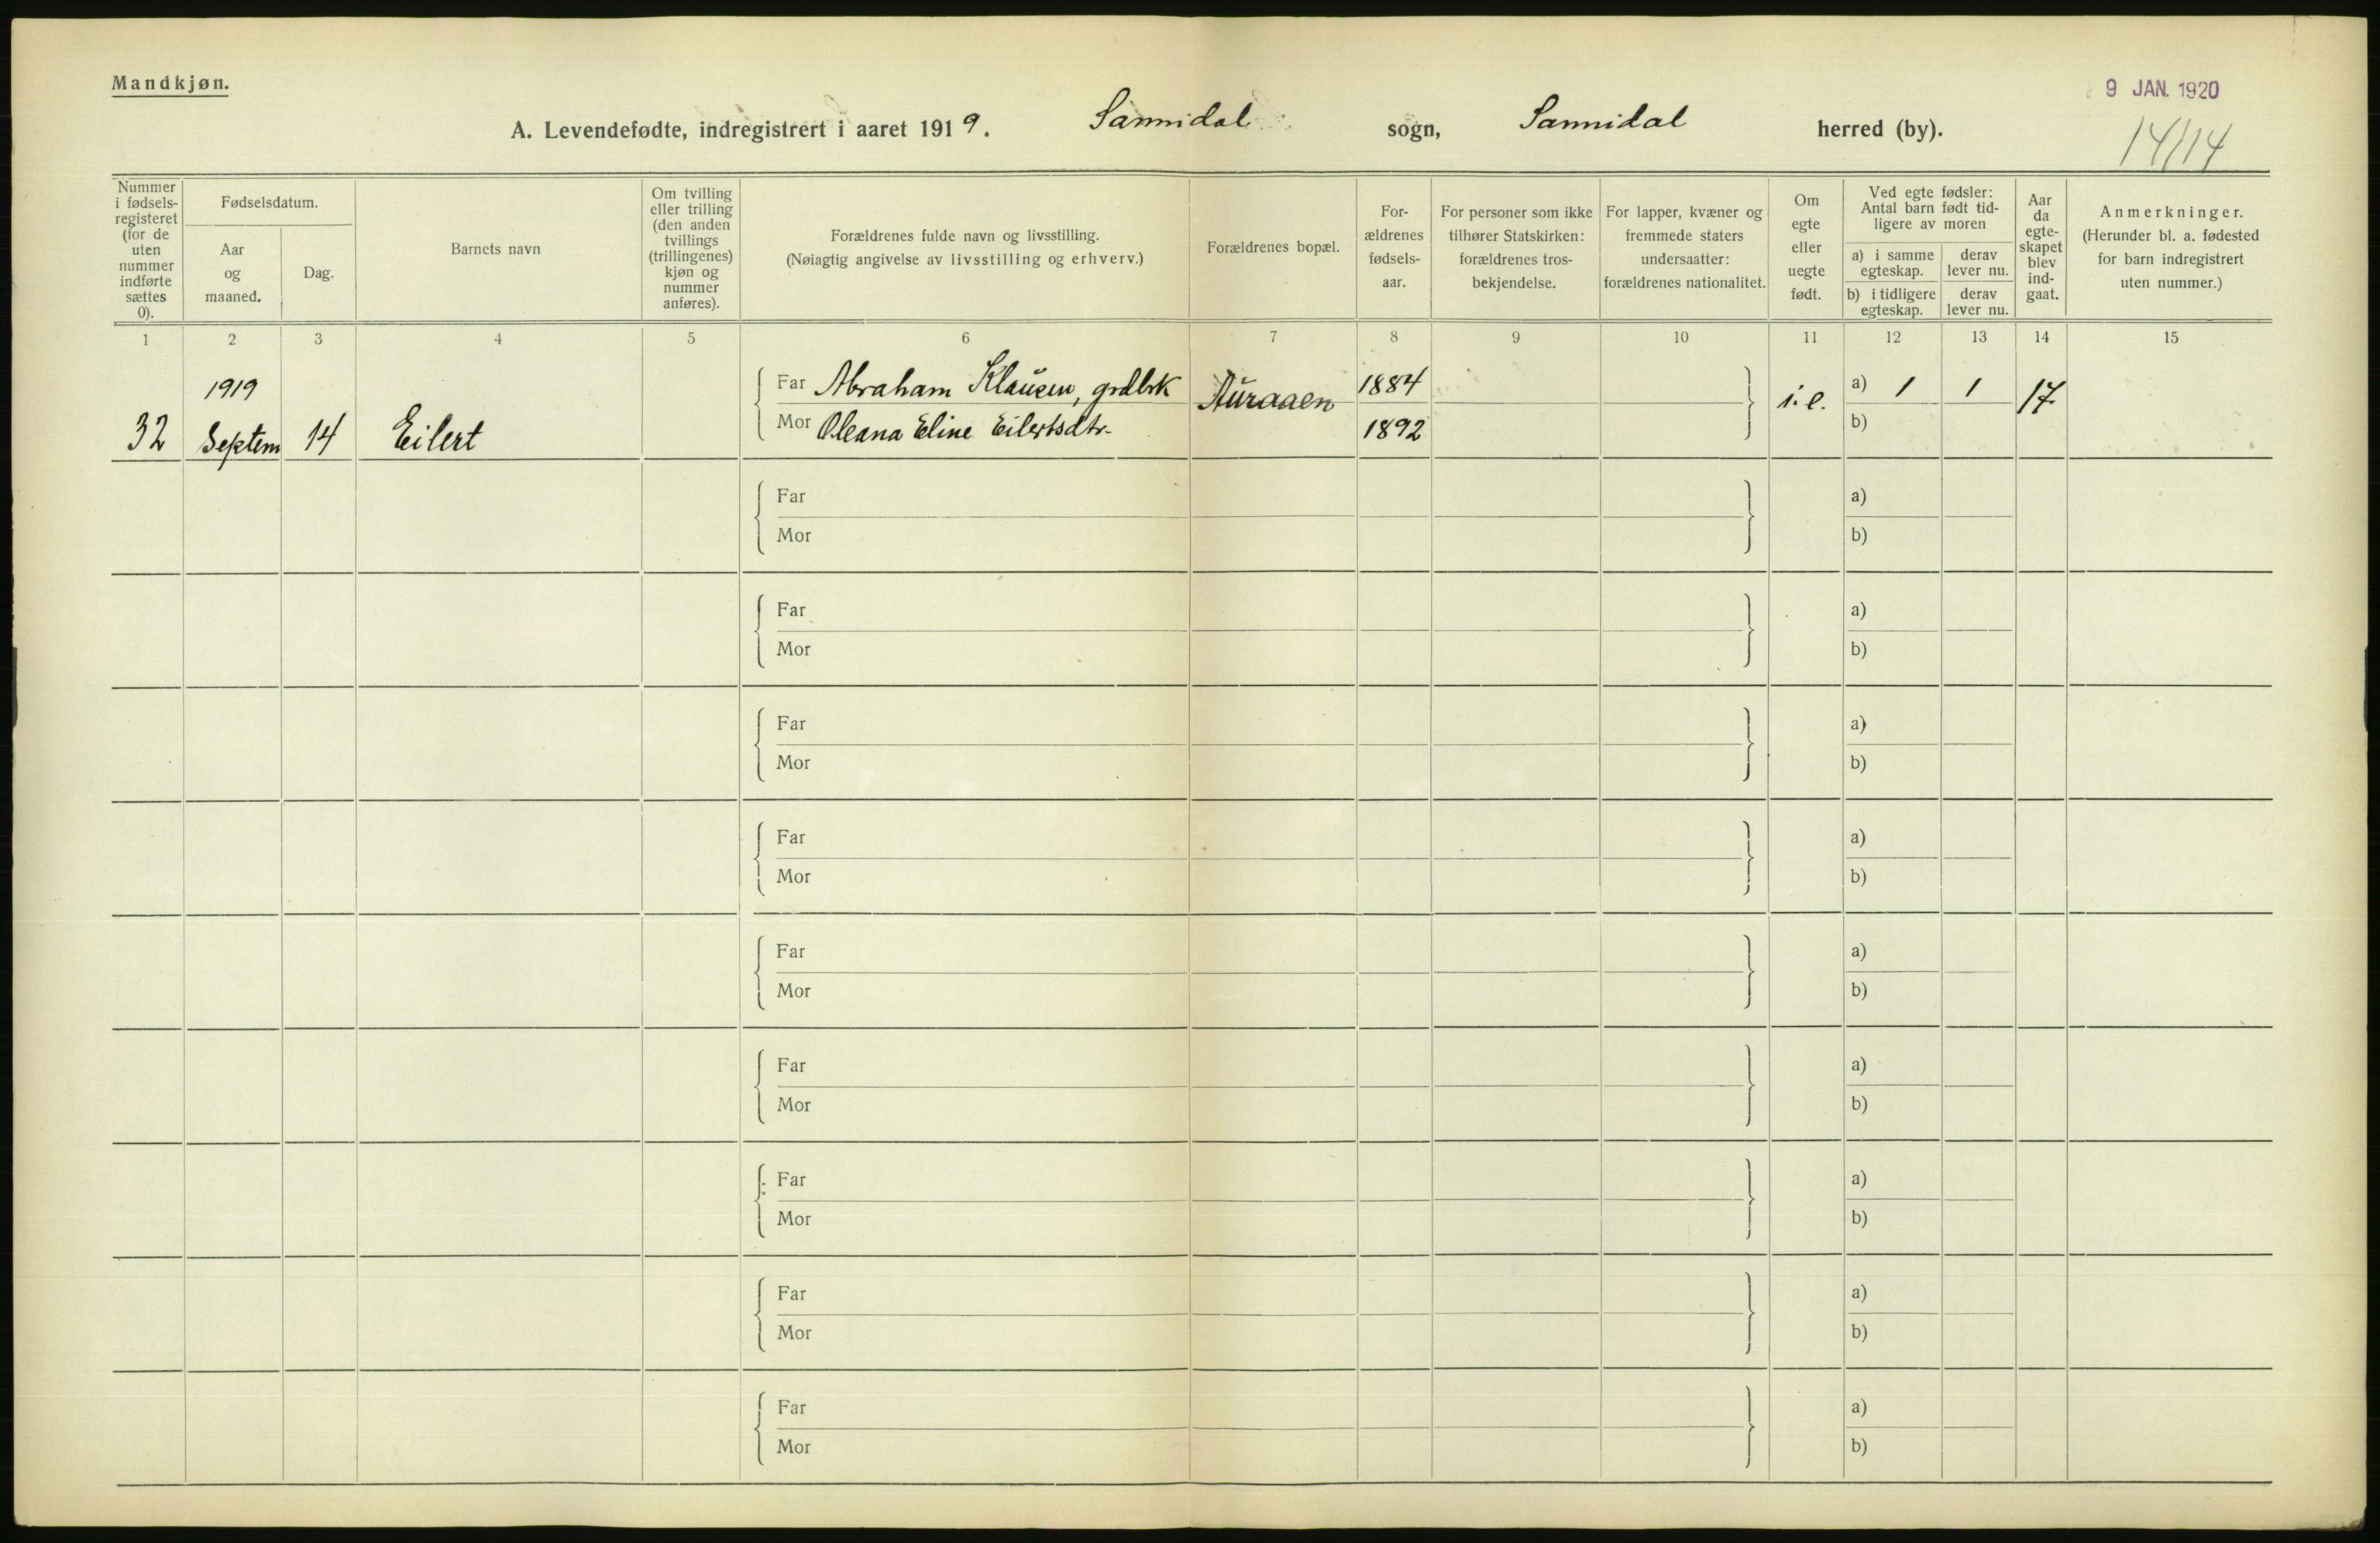 Mandkjøn.
9 JAN. 1920
A. Levendefødte, indregistrert i aaret 1919. Sannidal sogn, Sannidal herred (by).
14/14
Nummer i fødsels-registeret (for de uten nummer indførte sættes 0).
Fødselsdatum.
Aar og maaned.
Dag.
Barnets navn
Om tvilling eller trilling (den anden tvillings (trillingenes) kjøn og nummer anføres).
Forældrenes fulde navn og livsstilling.
(Nøiagtig angivelse av livsstilling og erhverv.)
Forældrenes bopæl.
For-ældrenes fødsels-aar.
For personer som ikke tilhører Statskirken: forældrenes tros-bekjendelse.
For lapper, kvæner og fremmede staters undersaatter: forældrenes nationalitet.
Om egte eller uegte født.
Ved egte fødsler: Antal barn født tid-ligere av moren
a) i samme egteskap.
derav lever nu.
b) i tidligere egteskap.
derav lever nu.
Aar da egte-skapet blev ind-gaat.
Anmerkninger.
(Herunder bl. a. fødested for barn indregistrert uten nummer.)
1 2 3 4 5 6 7 8 9 10 11 12 13 14 15
1919 Far Abraham Klausen, grdbrk Auraaen 1884 i.e. a) 1 1 17
32 Septem 14 Eilert Mor Oleana Eline Eilertsdtr. 1892 b)
Far a)
Mor b)
Far a)
Mor b)
Far a)
Mor b)
Far a)
Mor b)
Far a)
Mor b)
Far a)
Mor b)
Far a)
Mor b)
Far a)
Mor b)
Far a)
Mor b)